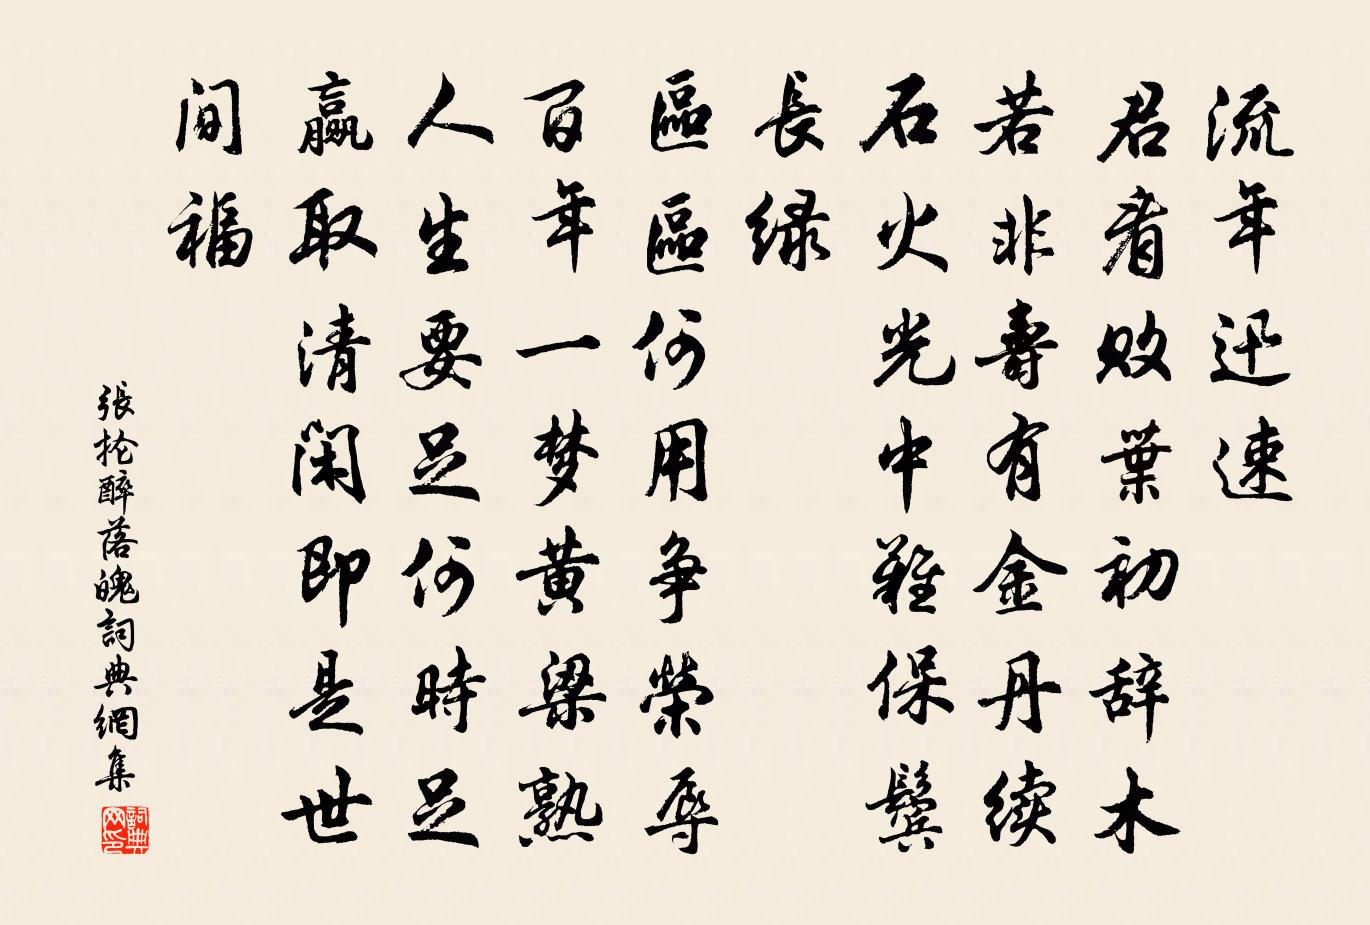 流年迅速
君看败葉初辞木
若非壽有金丹续
石火光中難保鬓
長绿
區區何用争榮辱
百年一梦黄粱熟
人生要足何時足
贏取清閑即是世
间福
張抡醉落魄詞典網集
詞典网印